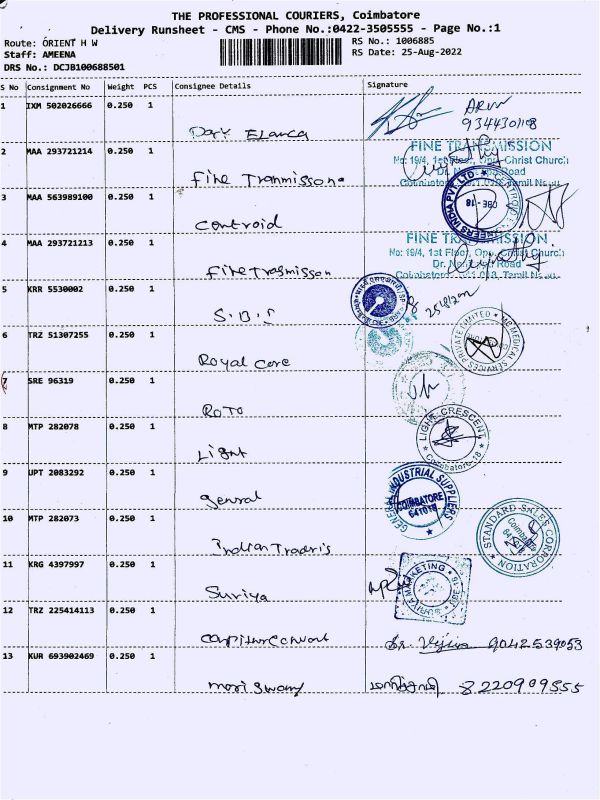 THE PROFESSIONAL COURIERS, Coimbatore
Delivery Runsheet - CMS - Phone No.:0422-3505555 - Page No.:1
Route: ORIENT H W RS No.: 1006885
Staff: AMEENA RS Date: 25-Aug-2022
DRS No.: DCJB100688501
S No Consignment No Weight PCS Consignee Details Signature
1 IXM 502026666 0.250 1
9344301108
2 MAA 293721214 0.250 1
FINE TRANSMISSION
No: 19/4, 1st Floor, Opp. Christ Church
Fine Tranmisson
3 MAA 563989100 0.250 1
CBE-18
Controid
4 MAA 293721213 0.250 1
FINE TRANSMISSION
No: 19/4, 1st Floor, Opp. Christ Church
Fine Trasmisson
5 KRR 5530002 0.250 1
S.B.I
6 TRZ 51307255 0.250 1
MEDICAL SERVICES PRIVATE LIMITED
Royal Care
7 SRE 96319 0.250 1
ROTO
8 MTP 282078 0.250 1
LIGHT CRESCENT
Coimbatore-18
Light
9 UPT 2083292 0.250 1
GENERAL INDUSTRIAL SUPPLIERS
COIMBATORE
641018
genral
10 MTP 282073 0.250 1
STANDARD SALES CORPORATION
Coimbatore
Indian Tradris
11 KRG 4397997 0.250 1
SURIYA MARKETING
Suriya
12 TRZ 225414113 0.250 1
Sr. 9042539053
13 KUR 693902469 0.250 1
mari swamy 8220909555